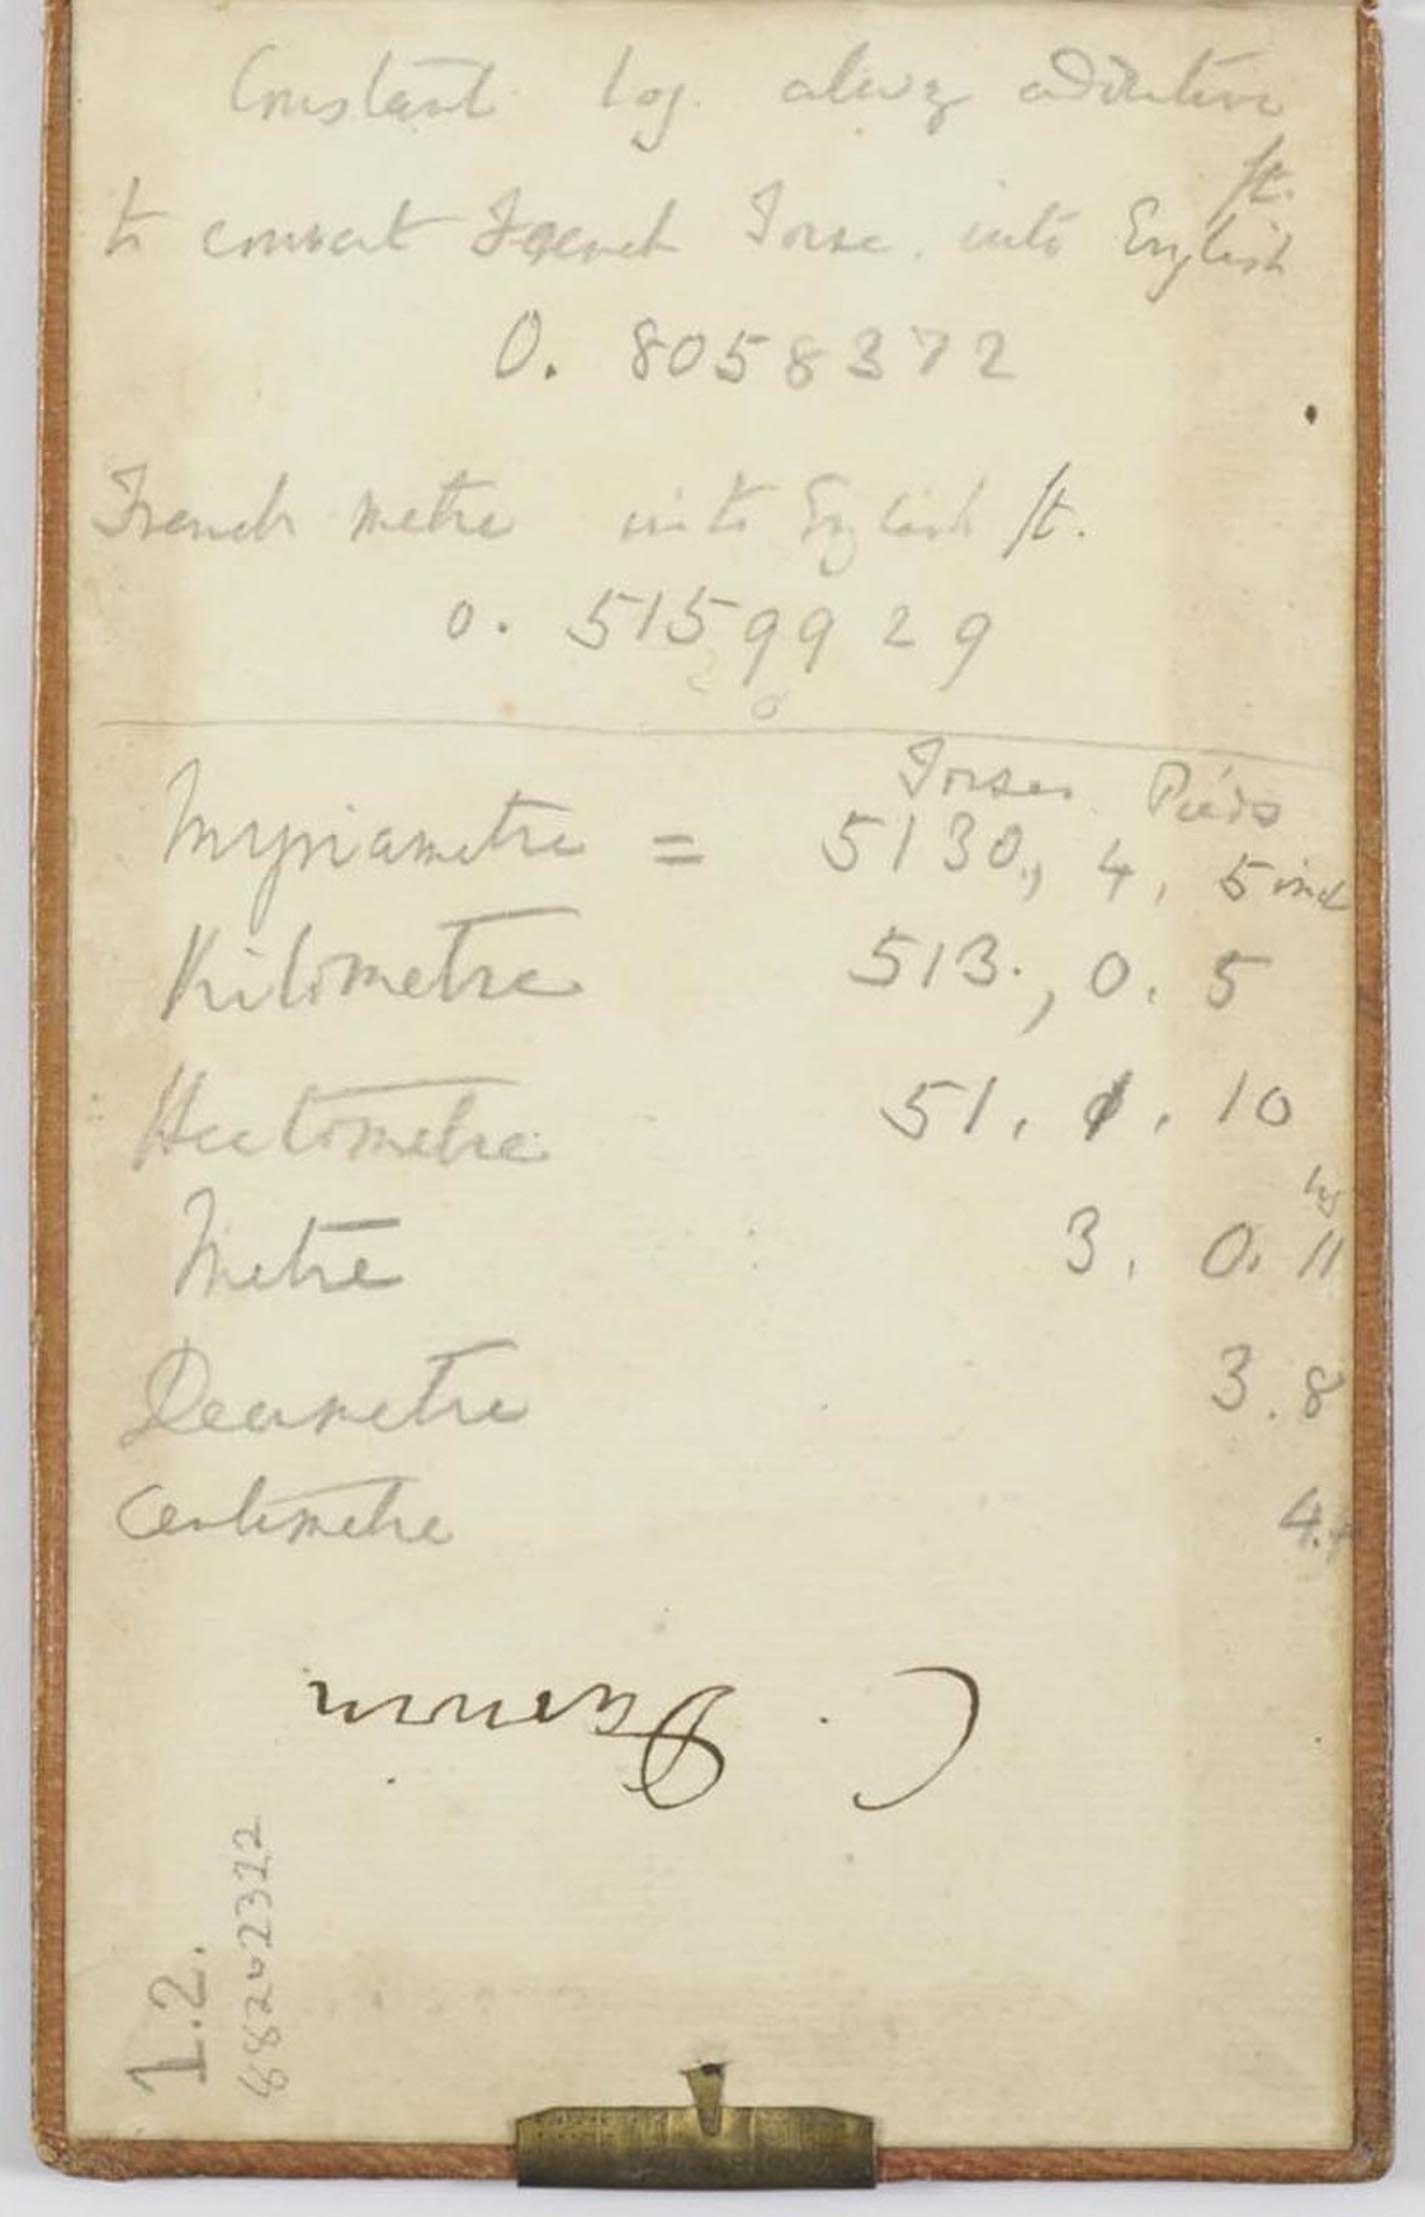 Constant log. always additive
to convert French Toise. into English ft.
0. 8058372
French metre into English ft.
0. 5159929
Toises Pieds
Myriametre = 5130., 4, 5 inch
Kilometre 513., 0. 5
Hectometre 51. 1. 10
Metre 3. 0. 11
Decimetre 3. 8
Centimetre 4.
C. Darwin
1.2.
88202322